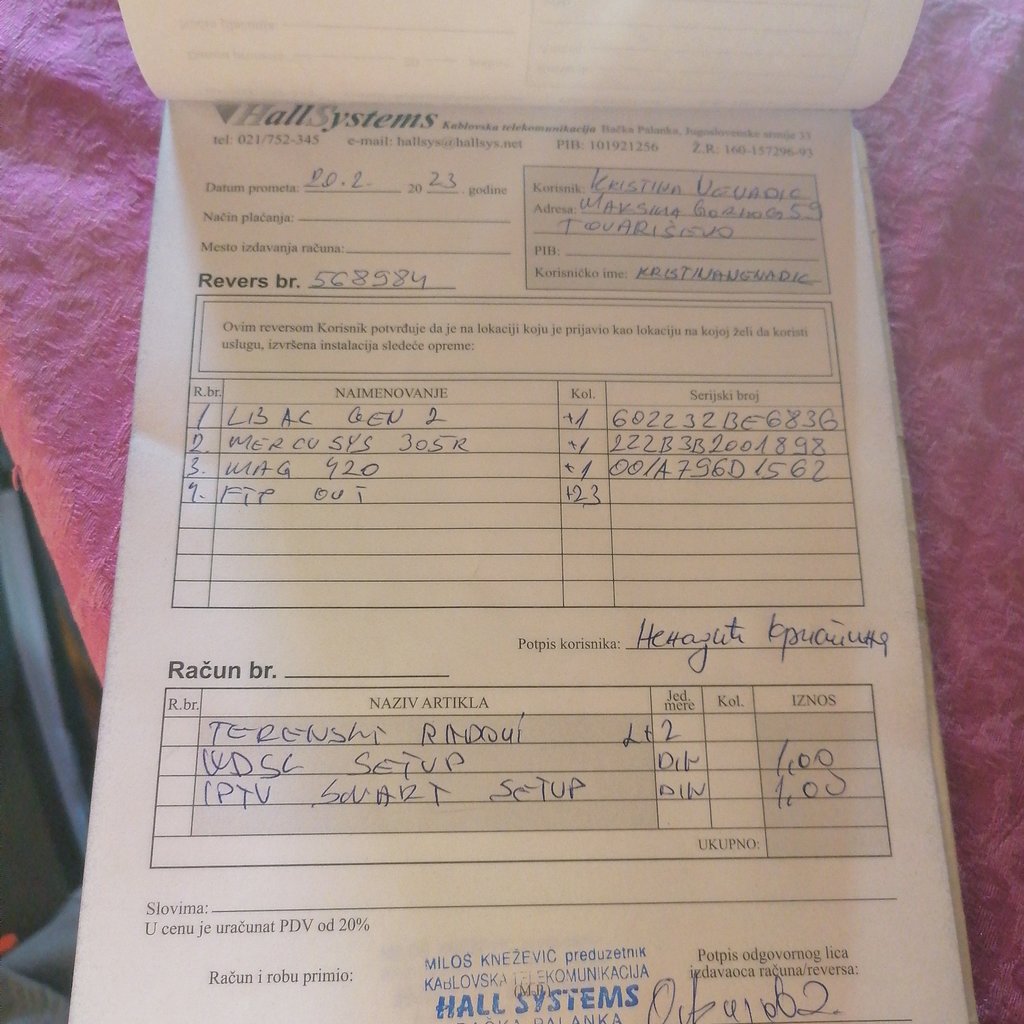 HallSystems Kablovska telekomunikacija Bačka Palanka, Jugoslovenske armije 33
tel: 021/752-345 e-mail: hallsys@hallsys.net PIB: 101921256 Ž.R: 160-157296-93
Datum prometa: 20.2. 20 23. godine
Način plaćanja:
Mesto izdavanja računa:
Revers br. 568984
Korisnik: KRISTINA NENADIC
Adresa: MAKSIMA GORKOG 59
TOVARIŠEVO
PIB:
Korisničko ime: KRISTINANENADIC
Ovim reversom Korisnik potvrđuje da je na lokaciji koju je prijavio kao lokaciju na kojoj želi da koristi
uslugu, izvršena instalacija sledeće opreme:
R.br. NAIMENOVANJE Kol. Serijski broj
1 LB AC GEN 2 +1 602232BE6836
2. MERCUSYS 305R +1 222B3B2001898
3. MAG 420 +1 001A796D1562
4. FTP OUT +23
Potpis korisnika: Ненадић Кристина
Račun br.
R.br. NAZIV ARTIKLA Jed. mere Kol. IZNOS
TERENSKI RADOVI 2
WDSL SETUP DIN 1,00
IPTV SMART SETUP DIN 1,00
UKUPNO:
Slovima:
U cenu je uračunat PDV od 20%
Račun i robu primio:
MILOŠ KNEŽEVIĆ preduzetnik
KABLOVSKA TELEKOMUNIKACIJA
(M.P.)
HALL SYSTEMS
BAČKA PALANKA
Potpis odgovornog lica
izdavaoca računa/reversa: